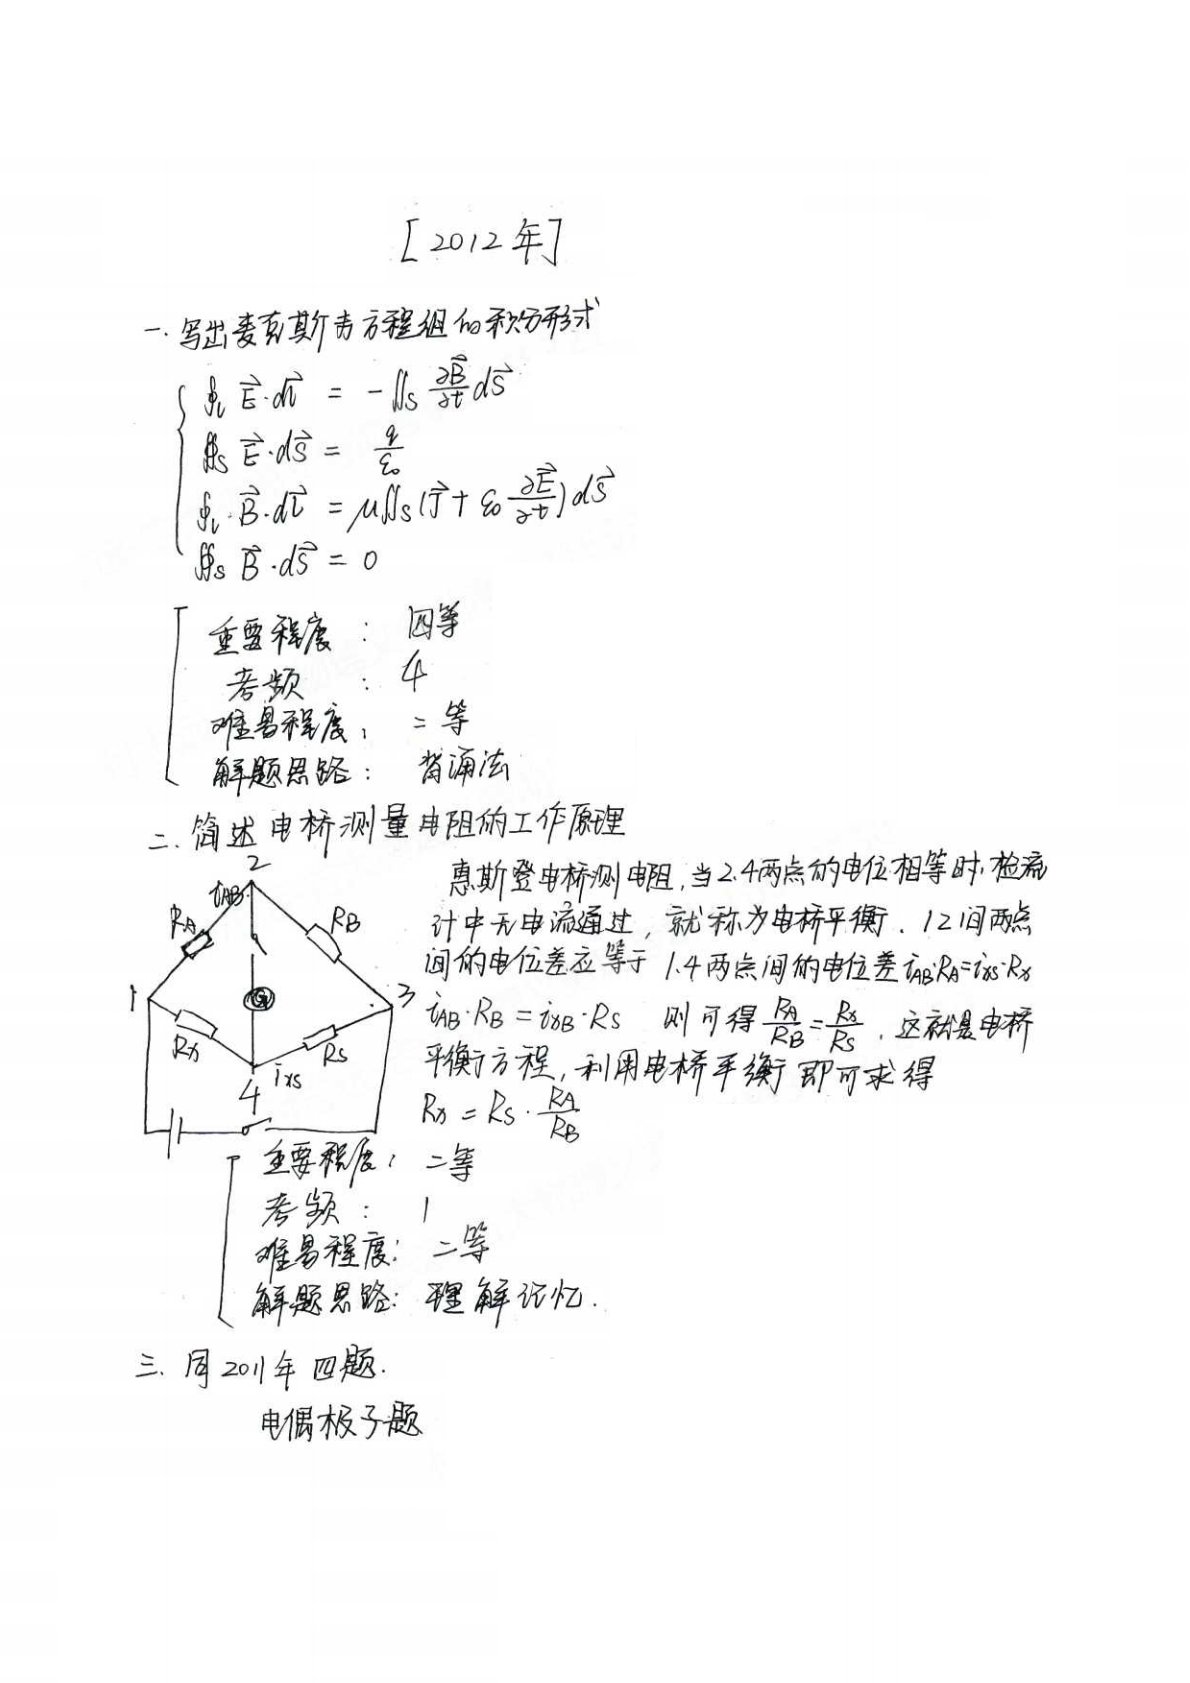 [2012年]
一.写出麦克斯韦方程组的积分形式
∮ₗ E⃗·dl⃗ = -∬s ∂B⃗/∂t dS⃗
∯s E⃗·dS⃗ = q/ε₀
∮ₗ·B⃗·dl⃗ = μ∬s(J⃗+ε₀ ∂E⃗/∂t)dS⃗
∯s B⃗·dS⃗ = 0
重要程度: 四等
考频: 4
难易程度: 二等
解题思路: 背诵法
二.简述电桥测量电阻的工作原理
2
iAB
RA
RB
1
G
3
Rx
RS
4
ixs
惠斯登电桥测电阻,当2.4两点的电位相等时,检流
计中无电流通过,就称为电桥平衡.12间两点
间的电位差应等于1.4两点间的电位差iAB·RA=ixs·Rx
iAB·RB=ixB·RS 则可得RA/RB=Rx/RS,这就是电桥
平衡方程,利用电桥平衡即可求得
Rx=RS·RA/RB
重要程度: 二等
考频: 1
难易程度: 二等
解题思路: 理解记忆.
三.同2011年四题.
电偶极子题